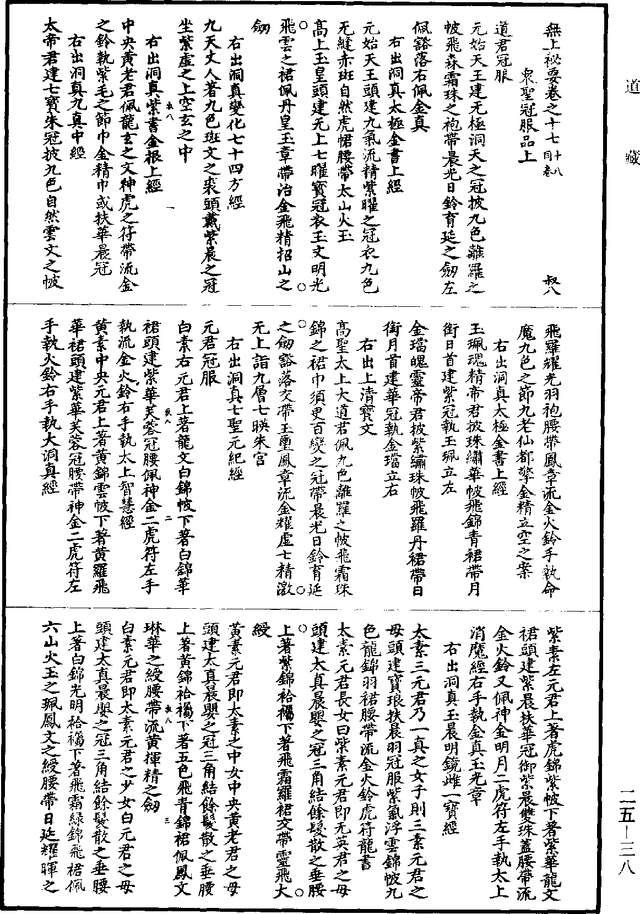 道藏
無上祕要卷之十七 十八同卷 叔八
衆聖冠服品上
道君冠服
元始天王建无極洞天之冠披九色離羅之
帔飛森霜珠之袍帶晨光日鈴育延之劒左
佩豁落右佩金真
右出洞真太極金書上經
元始天王頭建九氣流精紫曜之冠衣九色
无縫赤班自然虎𢂿腰帶太山火玉
高上玉皇頭建无上七曜寶冠衣玉文明光
飛雲之裙佩丹皇玉章帶冶金飛精招山之
劒
右出洞真變化七十四方經
九天丈人著九色斑文之裘頭戴紫晨之冠
坐紫虛之上空玄之中
右出洞真紫書金根上經
中央黃老君佩龍玄之文神虎之符帶流金
之鈴執紫毛之節巾金精巾或扶華晨冠
右出洞真九真中經
太帝君建七寶朱冠披九色自然雲文之帔
飛羅耀光羽袍腰帶鳳章流金火鈴手執命
魔九色之節九老仙都擎金精立空之案
右出洞真太極金書上經
玉珮瑰精帝君披珠繡華帔飛錦青裙帶月
銜日首建紫冠執玉珮立左
金璫魄靈帝君披紫繡珠帔飛羅丹裙帶日
銜月首建華冠執金璫立右
右出上清寶文
高聖太上大道君佩九色離羅之帔飛霜珠
錦之裙巾須更百變之冠帶晨光日鈴育延
之劒豁落交帶玉璽鳳章流金耀虛士精激
无上詣九層七映朱宮
右出洞真七聖元紀經
元君冠服
白素右元君上著龍文白錦帔下著白錦華
裙頭建紫華芙蓉冠腰佩神金二虎符左手
執流金火鈴右手執太上智慧經
黃素中央元君上著黃錦雲帔下著黃羅飛
華裙頭建紫華芙蓉冠腰帶神金二虎符左
手執火鈴右手執大洞真經
紫素左元君上著虎錦紫帔下著紫華龍文
裙頭建紫晨扶華冠御紫晨雙珠蓋腰帶流
金火鈴又佩神金明月二虎符左手執太上
消魔經右手執金真玉光章
右出洞真玉晨明鏡雌一寶經
太素三元君乃一真之女子則三素元君之
母頭建寶琅扶晨羽冠服紫氣浮雲錦帔九
色龍錦羽裙腰帶流金火鈴虎符龍書
太素元君長女曰紫素元君即无英君之母
頭建太真晨嬰之冠三角結餘髮散之垂腰
上著紫錦袷襡下著飛霜羅裙交帶靈飛大
綬
黃素元君即太素之中女中央黃老君之母
頭建太真晨嬰之冠三角結餘髮散之垂腰
上著黃錦袷襡下著五色飛青錦裙佩鳳文
琳華之綬腰帶流黃揮精之劒
白素元君即太素元君之少女白元君之母
頭建太真晨嬰之冠三角結餘髮散之垂腰
上著白錦光明袷襡下著飛霜綠錦飛裙佩
六山火玉之珮鳳文之綬腰帶日延耀暉之
二五—三八